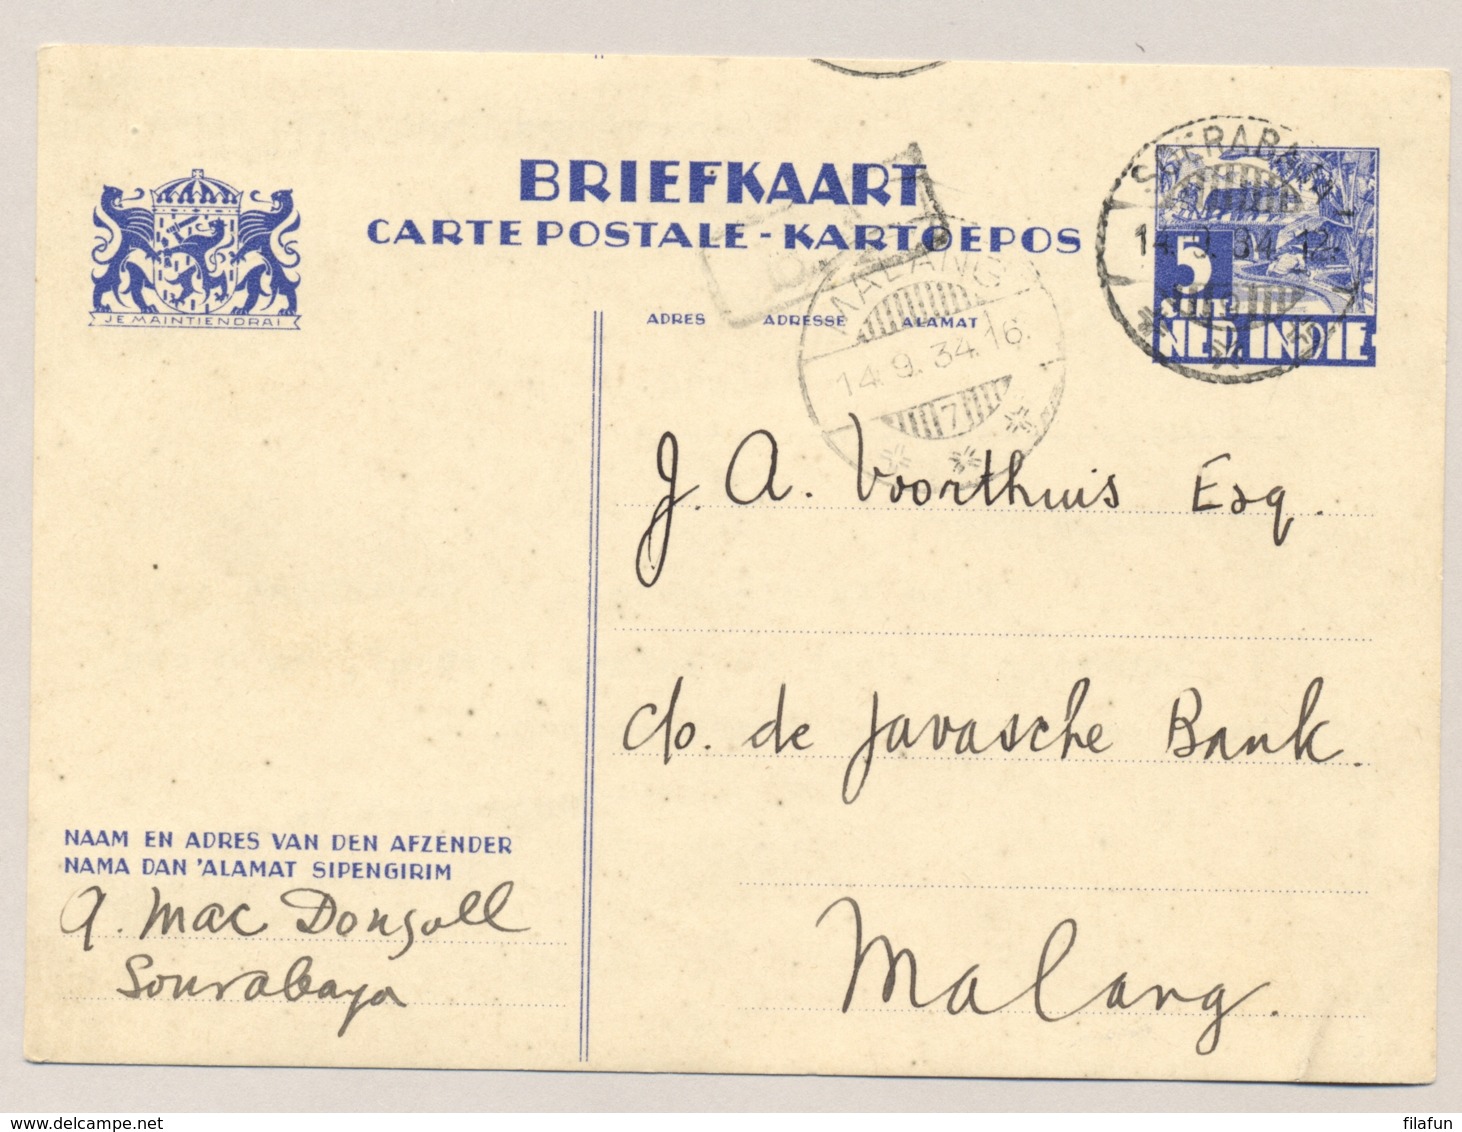 BRIEFKAART
CARTE POSTALE - KARTOEPOS
JE MAINTIENDRAI
ADRES ADRESSE ALAMAT
SOERABAJA
14.9.34.12
5
CENT
NED INDIE
MALANG
14.9.34.16.
7
J. A. Voorthuis Esq.
c/o. de Javasche Bank.
Malang.
NAAM EN ADRES VAN DEN AFZENDER
NAMA DAN 'ALAMAT SIPENGIRIM
A. Mac Dougall
Sourabaya
delcampe.net
filafun